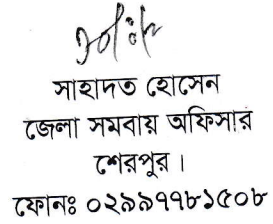 সাহাদত হোসেন
জেলা সমবায় অফিসার
শেরপুর।
ফোনঃ ০২৯৯৭৭৮১৫০৮